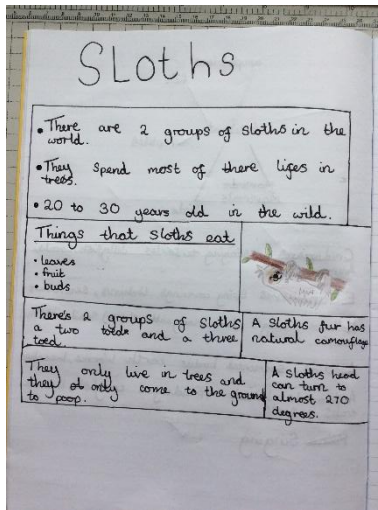 SLoths
• There are 2 groups of sloths in the
world.
• They spend most of there lifes in
trees.
• 20 to 30 years old in the wild.
Things that sloths eat
• leaves
• fruit
• buds
There's 2 groups of sloths
a two toed and a three
toed.
A sloths fur has
natural camouflage
They only live in trees and
they only come to the ground
to poop.
A sloths head
can turn to
almost 270
degrees.